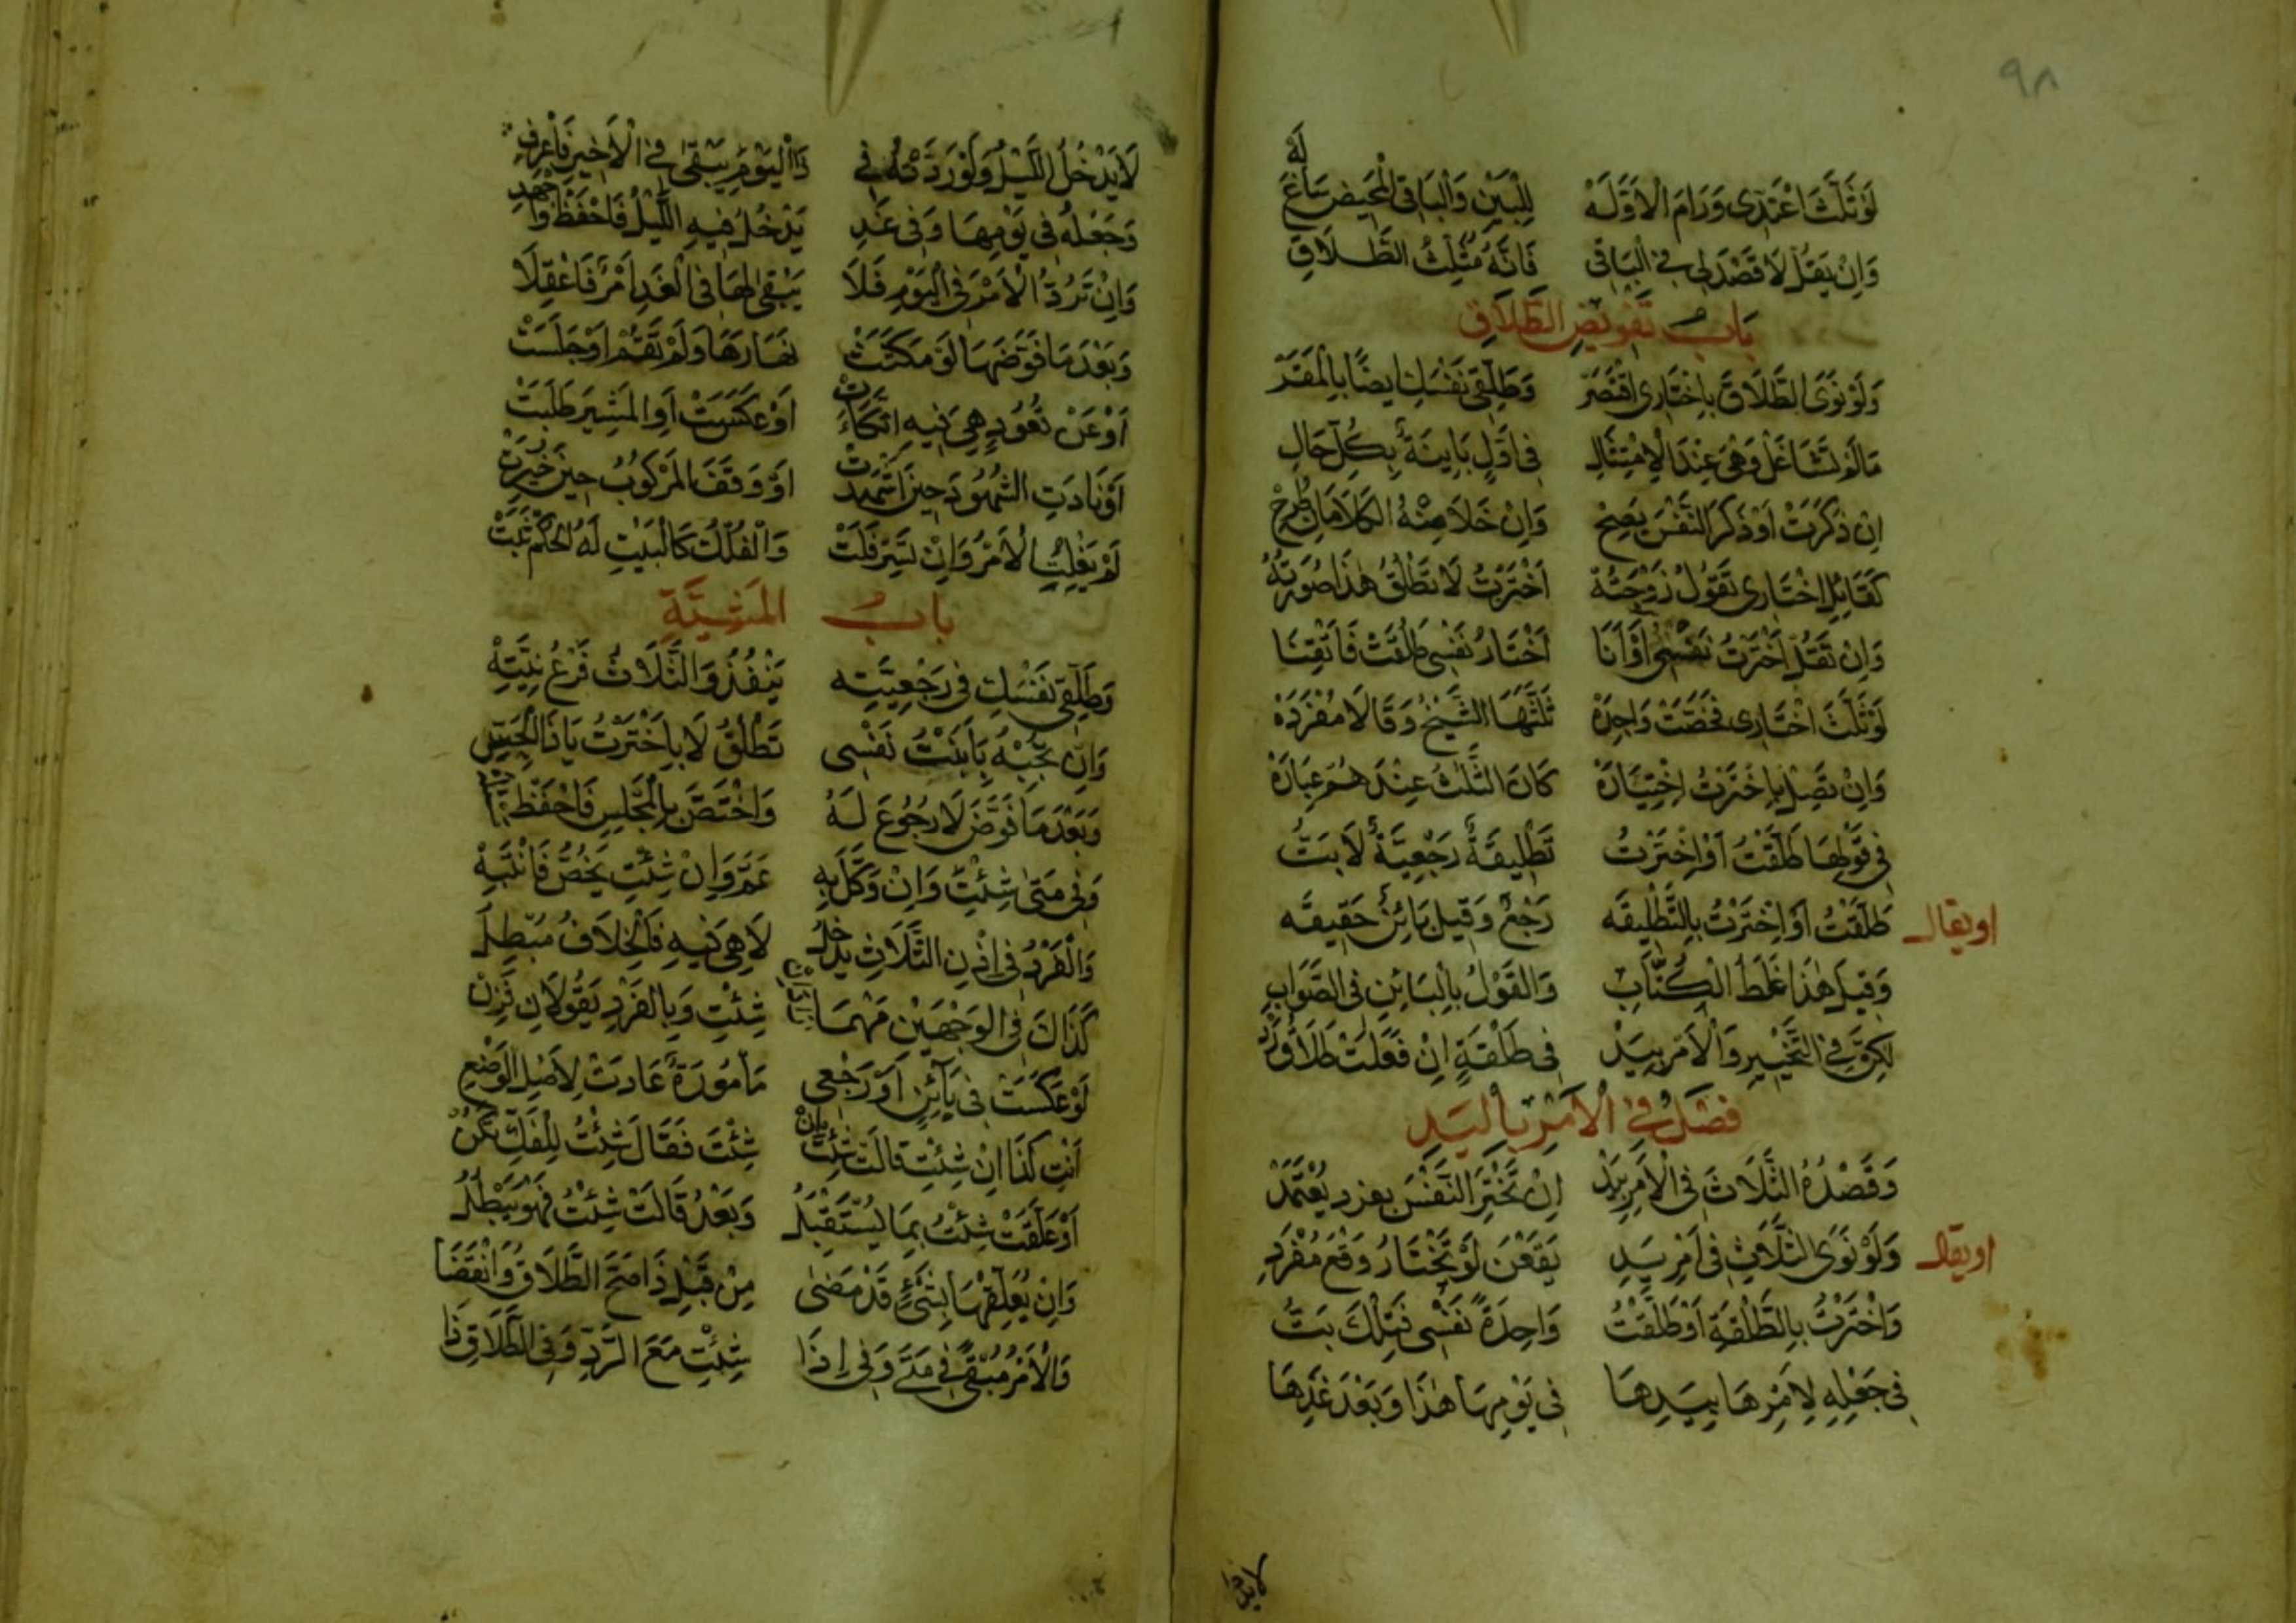 ٩٨
لَوْ ثَلَّثَ اعْتَدِّى وَرَامَ الْاَوَّلَهْ لِلْبَيْنِ وَالْبَاقِى الْمَحِيضِ سَاغَ لَهْ
وَاِنْ يَقُلْ لَا قَصْدَ لِى فِى الْبَاقِى فَاِنَّهُ مُثَلِّثُ الطَّلَاقِ
بَابُ تَفْوِيضِ الطَّلَاقِ
وَلَوْ نَوَى الطَّلَاقَ بِاخْتَارِى اقْتَصَرْ وَطَلِّقِى نَفْسَكِ ايضًا بِالْمَقَرْ
مَا لَمْ تَشَاغَلْ وَهْىَ عِنْدَ الْاِمْتِثَالِ فِى اَوَّلٍ بَايِنَةٌ بِكُلِّ حَالِ
اِنْ ذَكَرَتْ اَوْ ذَكَرَ النَّفْسَ يَصِحْ وَاِنْ خَلَا مِنْهُ الْكَلَامَانِ طُرِحْ
كَقَائِلِ اخْتَارِى تَقُولُ زَوْجَتُهْ اخْتَرْتُ لَا تَطْلُقُ هٰذَا صُورَتُهُ
وَاِنْ تَقُلْ اخْتَرْتُ نَفْسِى اَوْ اَنَا اَخْتَارُ نَفْسِى طُلِّقَتْ فَاتْقِنَا
لَوْ ثَلَّثَ اخْتَارِى فَخَصَّتْ وَاحِدَهْ ثَلَّثَهَا الشَّيْخُ وَقَالَا مُفْرَدَهْ
وَاِنْ تَصِلْ بِاخْتَرْتُ اِخْتِيَارَهْ كَانَ الثَّلَثُ عِنْدَهُمْ عِبَارَهْ
فِى قَوْلِهَا طَلَّقْتُ اَوْ اِخْتَرْتُ تَطْلِيقَةً رَجْعِيَّةً لَا بَتُّ
اويقال طَلَّقْتُ اَوْ اِخْتَرْتُ بِالتَّطْلِيقَه رَجْعٌ وَقِيلَ بَائِنٌ حَقِيقَه
وَقِيلَ هٰذَا غَلَطُ الْكُتَّابِ وَالْقَوْلُ بِالْبَائِنِ فِى الصَّوَابِ
لٰكِنَّ فِى التَّخْيِيرِ وَالْاَمْرِ بِيَدْ فِى طَلْقَةٍ اِنْ فَعَلَتْ طَلَاقُ رَدْ
فَصْلٌ فِى الْاَمْرِ بِالْيَدِ
وَقَصْدُهُ الثَّلَاثَ فِى الْاَمْرِ بِيَدْ اِنْ تَخْتَرِ النَّفْسَ بِفَرْدٍ يُعْتَمَدْ
اويقال وَلَوْ نَوَى الثَّلَاثَ فِى اَمْرٍ بِيَدِ يَقَعْنَ لَوْ تَخْتَارُ وَقْعَ مُفْرَدِ
وَاخْتَرْتُ بِالطَّلْقَةِ اَوْ طَلَّقْتُ وَاحِدَةً نَفْسِى فَتِلْكَ بَتُّ
فِى جَعْلِهِ لِاَمْرِهَا بِيَدِهَا فِى يَوْمِهَا هٰذَا وَبَعْدَ غَدِهَا
لَا يَدْخُلُ اللَّيْلُ وَلَوْ رَدَّتْهُ فِى ذَا الْيَوْمِ يَبْقَى فِى الْاَخِيرِ فَاعْرِفِ
وَجَعْلُهُ فِى يَوْمِهَا وَفِى غَدِ يَدْخُلُ فِيهِ اللَّيْلُ فَاحْفَظْ وَاجْهَدِ
وَاِنْ تَرُدَّ الْاَمْرَ فِى الْيَوْمِ فَلَا يَبْقَى لَهَا فِى الْغَدِ اَمْرٌ فَاعْقِلَا
وَبَعْدَ مَا فَوَّضَهَا لَوْ مَكَثَتْ نَهَارَهَا وَلَمْ تَقُمْ اَوْ جَلَسَتْ
اَوْ عَنْ قُعُودٍ هِىَ فِيهِ اتَّكَأَتْ اَوْ عَكَسَتْ اَوِ الْمُشِيرَ طَلَبَتْ
اَوْ نَادَتِ الشُّهُودَ حِينَ اَشْهَدَتْ اَوْ وَقَفَ الْمَرْكُوبُ حِينَ خُيِّرَتْ
لَمْ يَفْلِتِ الْاَمْرُ وَاِنْ تَسِرْ فَلَتْ وَالْفُلْكُ كَالْبَيْتِ لَهُ الْحُكْمُ ثَبَتْ
بابُ الْمَشِيَّةِ
وَطَلِّقِى نَفْسَكِ فِى رَجْعِيَّتِه يَنْفُذُ وَالثَّلَاثُ فَرْعُ نِيَّتِهْ
وَاِنْ تُجِبْهُ بِاَبَنْتُ نَفْسِى تَطْلُقْ لَا بِاخْتَرْتُ يَا ذَا الْحَدْسِ
وَبَعْدَ مَا فَوَّضَ لَا رُجُوعَ لَهُ وَاخْتَصَّ بِالْمَجْلِسِ فَاحْفَظْ
وَفِى مَتَى شِئْتِ وَاِنْ وَكَّلَ بِهِ عَمَّ وَاِنْ شِئْتِ يَخُصُّ فَانْتَبِهْ
وَالْفَرْدُ فِى اِذْنِ الثَّلَاثِ يَدْخُلُ لَا هِىَ فِيهِ فَالْخِلَافُ مُبْطِلُ
كَذَاكَ فِى الْوَجْهَيْنِ مَهْمَا شِئْتِ وَبِالْفَرْدِ يَقُولَانِ
لَوْ عَكَسَتْ فِى بَائِنٍ اَوْ رَجْعِى مَأمُورَةٌ عَادَتْ لِاَصْلِ الْوَضْعِ
اَنْتِ كَذَا اِنْ شِئْتِ قَالَتْ شِئْتُ بِاِنْ شِئْتَ فَقَالَ شِئْتُ لِلْفَكِّ
اَوْ عَلَّقَتْ شِئْتُ بِمَا يُسْتَقْبَلُ وَبَعْدُ قَالَتْ شِئْتُ فَهْوَ يَبْطُلُ
وَاِنْ يُعَلِّقْهَا بِشَىْءٍ قَدْ مَضَى مِنْ قَبْلِ ذَا صَحَّ الطَّلَاقُ وَانْقَضَا
وَالْاَمْرُ مُبْقًى فِى مَتَى وَفِى اِذَا شِئْتِ مَعَ الرَّدِّ وَفِى الطَّلَاقِ ذَا